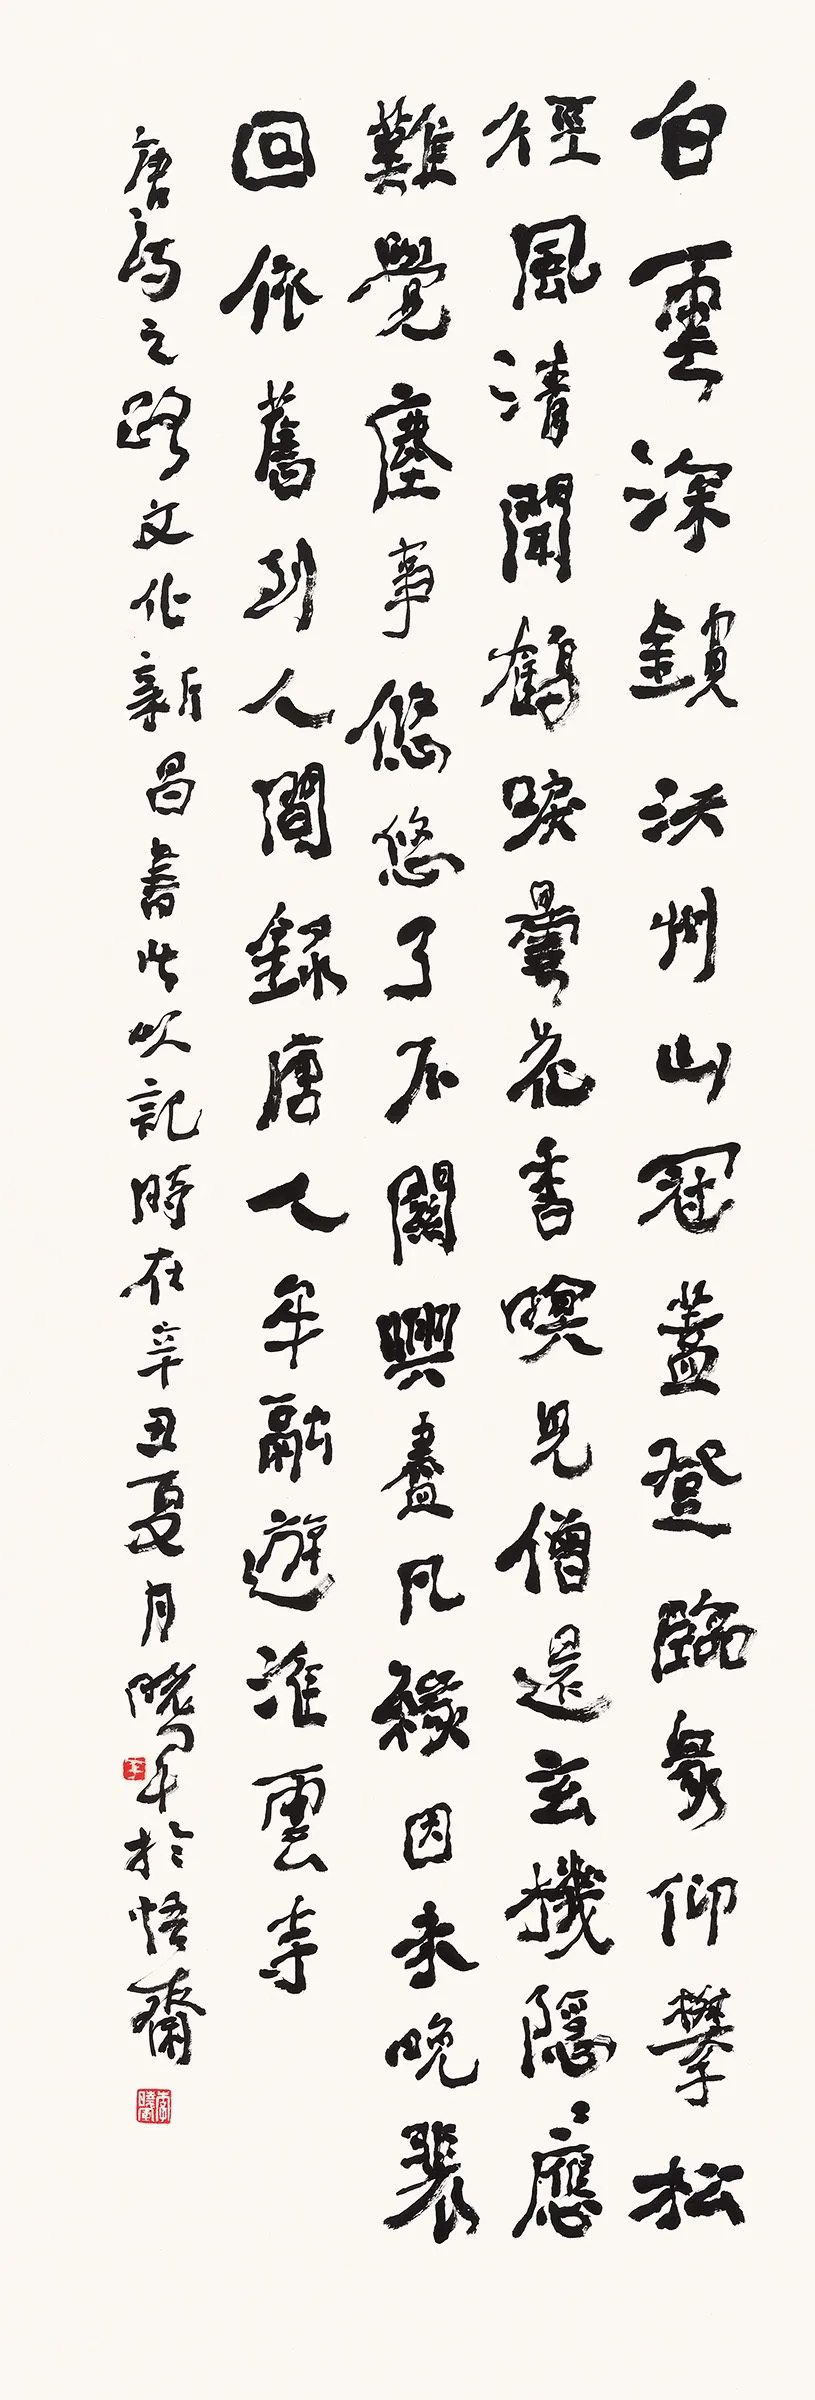 白雲深鎖沃州山冠蓋登臨眾仰攀松
徑風清聞鶴唳曇花香暝見僧還玄機隱隱應
難覺塵事悠悠了不關興盡凡緣因未晚裴
回依舊到人間錄唐人牟融遊淮雲寺
唐詩之路文化新昌書此以記時在辛丑夏月曉軍於悟齋